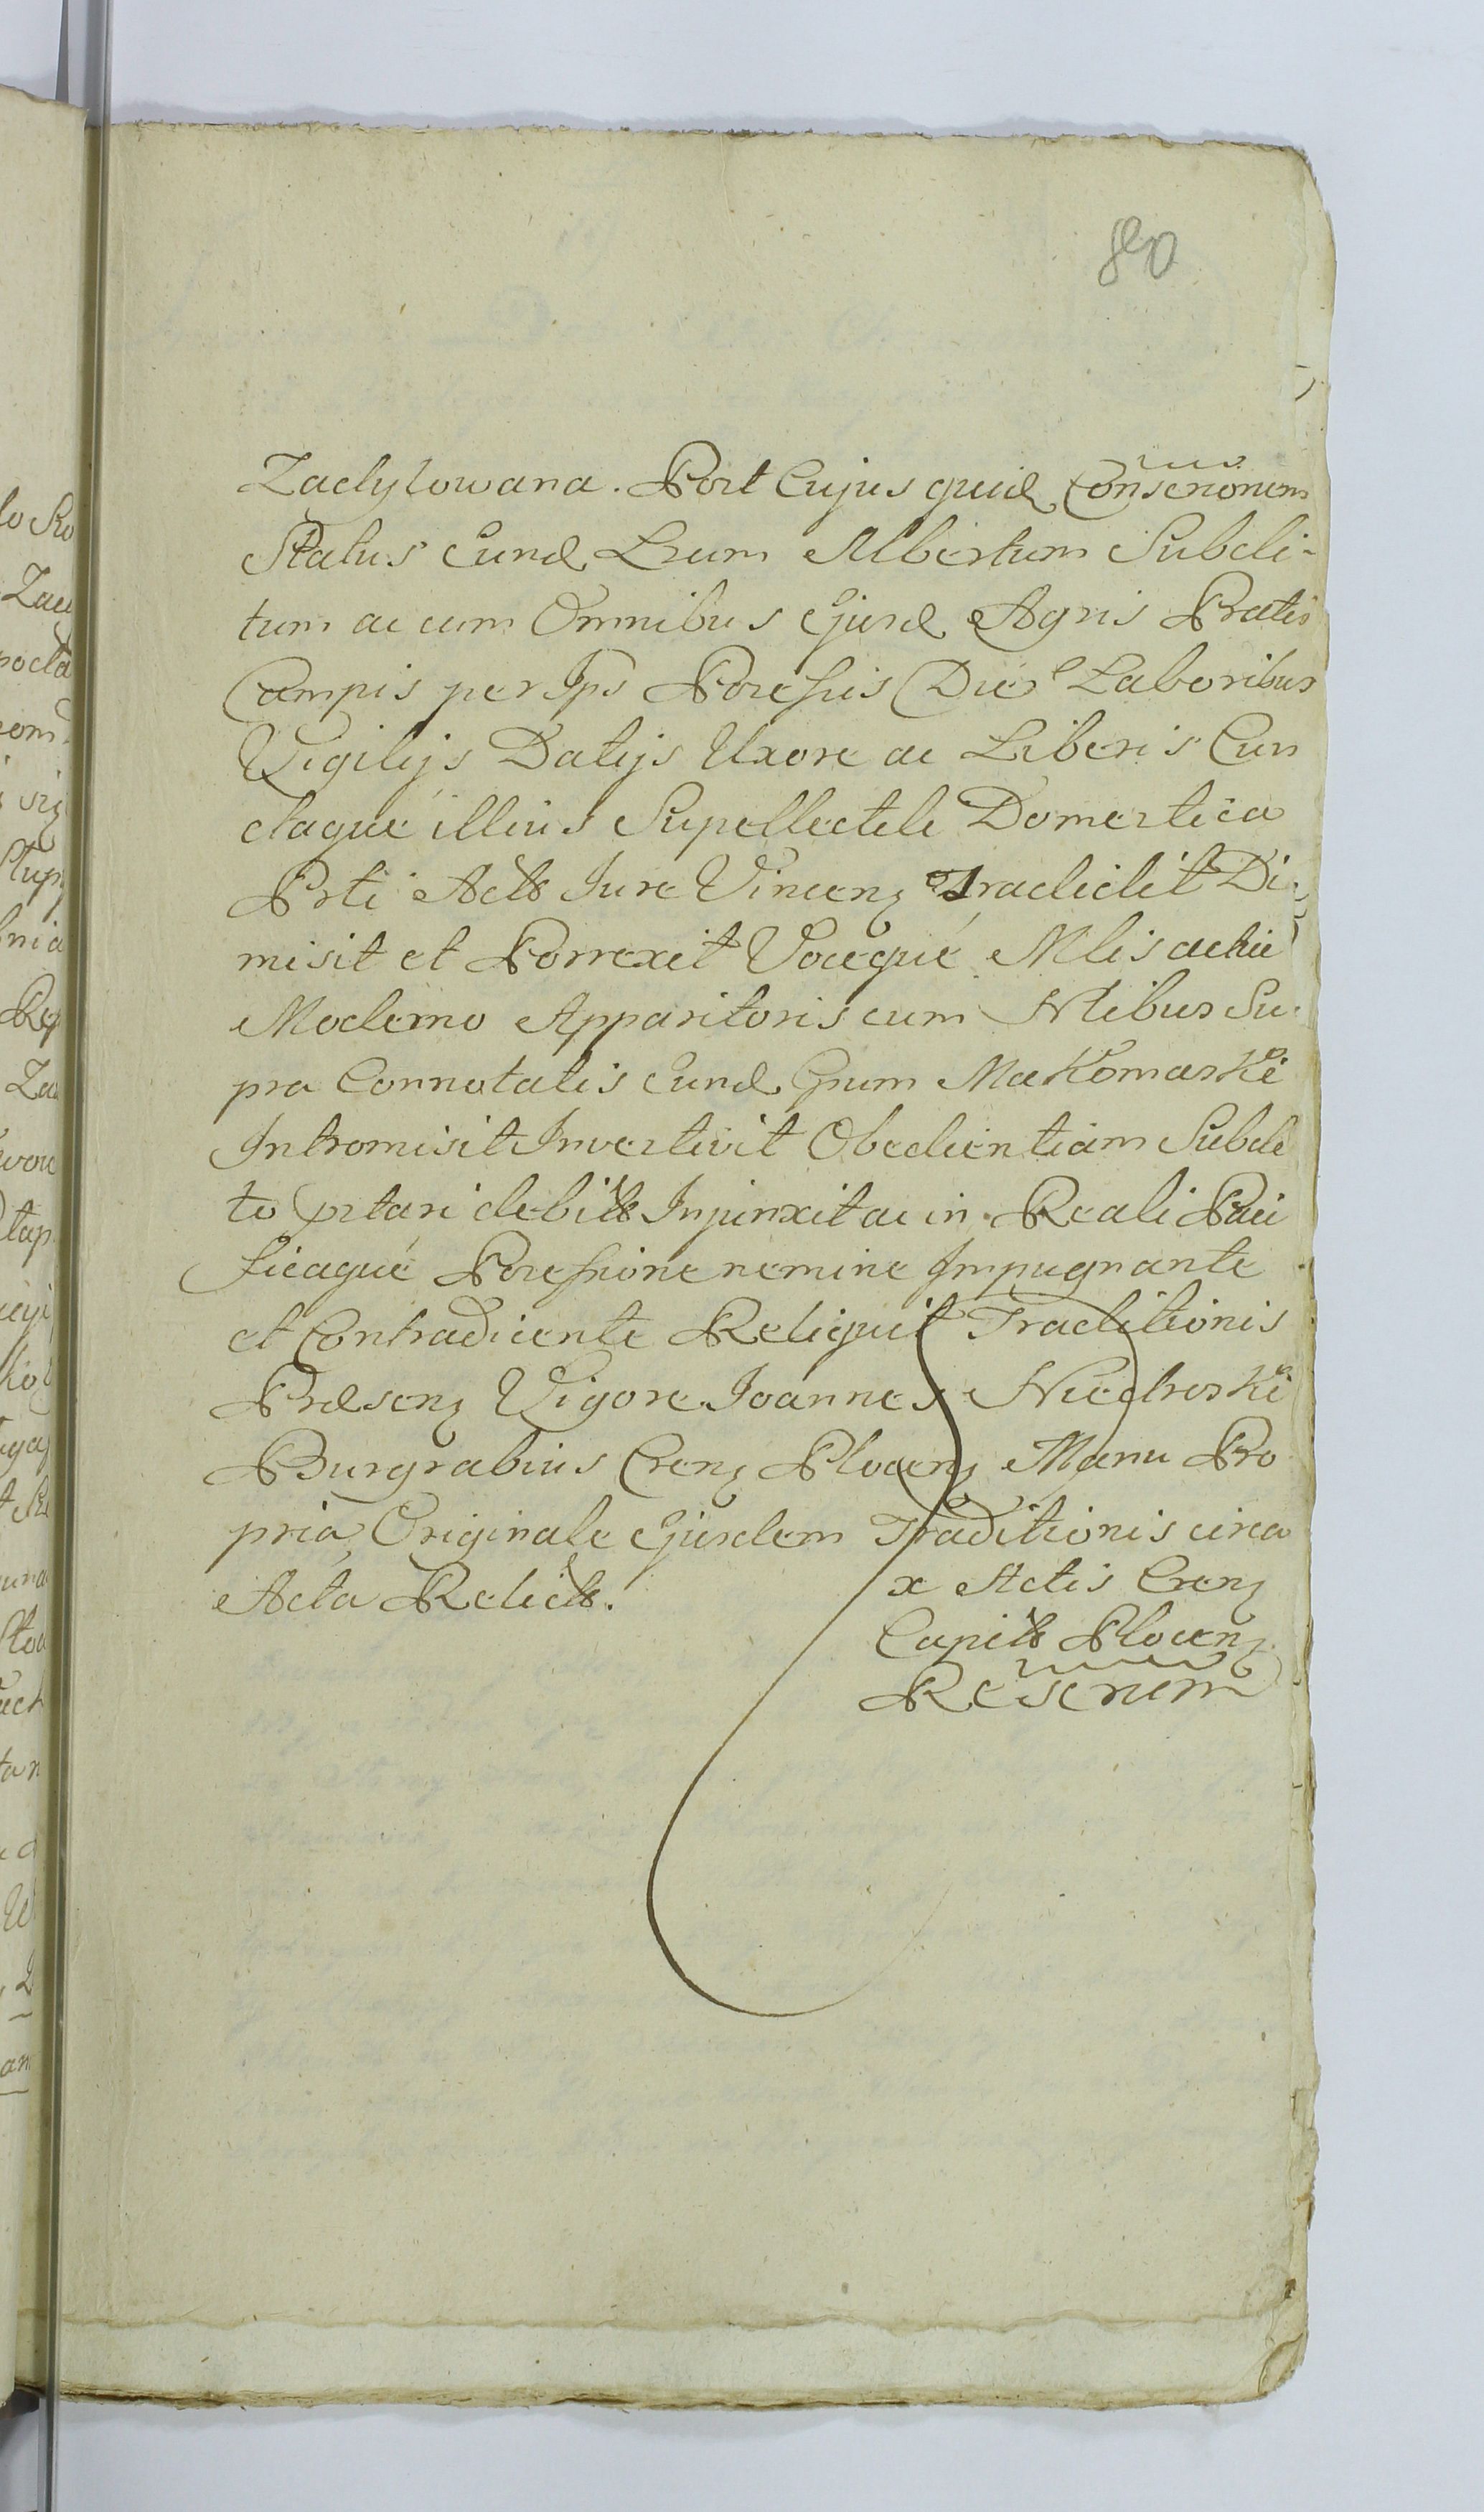 80
Zadylowana. Post Cujus quid Conscrionem
Status Eund Lrum Albertum Subdi-
tum ac cum Omnibus Ejusd Agris Pratis
Campis per Ips Possessis Die Laboribus
Vigilijs Datijs Uxore ac Liberis Cun
ctaque illius Supellectele Domestica
Prti Actt Jure Vincenz Tradidit Di
misit et Porrexit Voceque Mlis ac hic
Moderno Apparitoris cum Nlibus Su
pra Connotatis Eund Gnum Makomaski
Intromisit Investivit Obedientiam Subdi
to prtari debitt Injunxit ac in Reali Paci
ficaque Possessione nemine Impugnante
et Contradicente Reliquit Traditionis
Prdsenz Vigore. Joannes Niedroski
Burgrabius Crenz Plocenz Manu Pro
pria Originale Ejusdem Traditionis circa
Acta Relictt.
x Actis Crenz
Capitt Plocenz
Rescrium